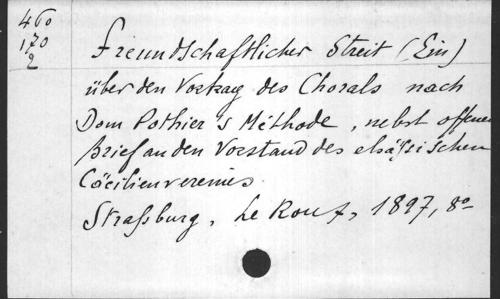 460
170
2
Freundschaftlicher Streit (Ein)
über den Vortrag des Chorals nach
Dom Pothier's Méthode, nebst offenen
Brief an den Vorstand des elsässischen
Cäcilienvereines
Straßburg, Le Roux, 1897, 8º